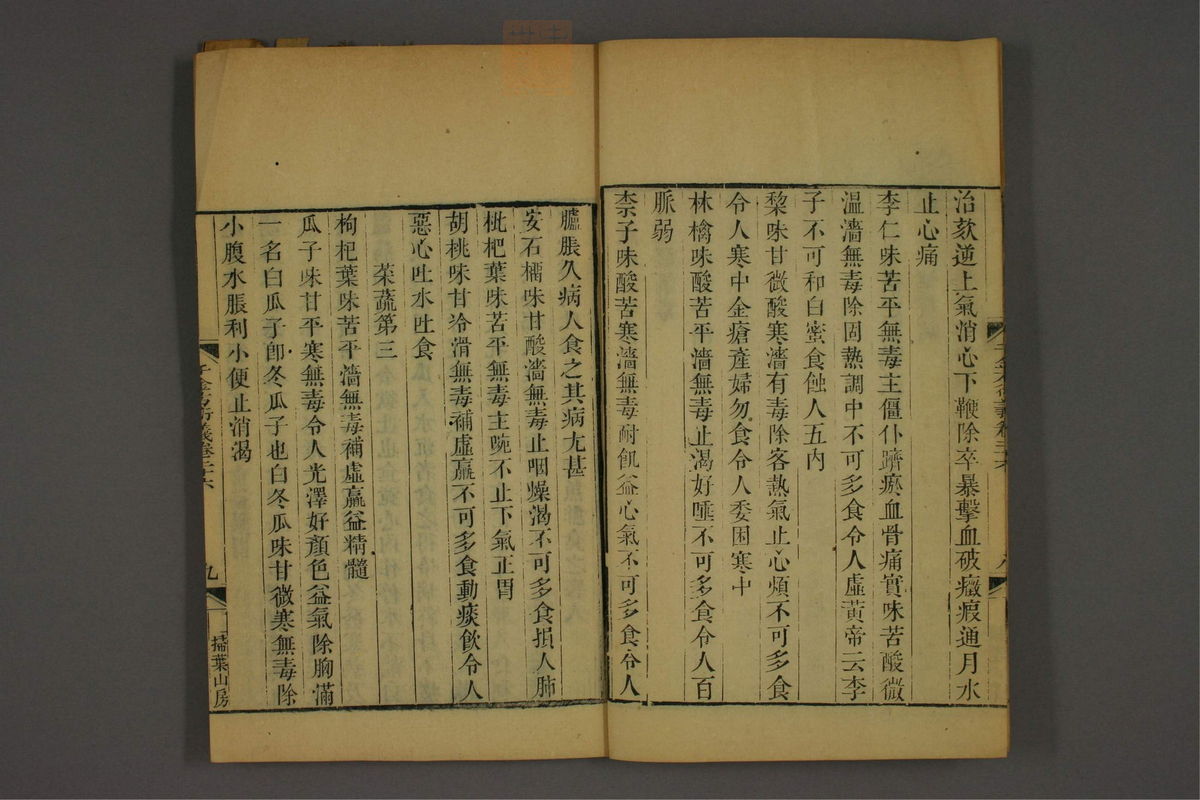 治欬逆上氣消心下鞕除卒暴擊血破癥瘕通月水
止心痛
李仁味苦平無毒主僵仆躋瘀血骨痛實味苦酸微
温濇無毒除固熱調中不可多食令人虛黃帝云李
子不可和白蜜食蝕人五内
棃味甘微酸寒濇有毒除客熱氣止心煩不可多食
令人寒中金瘡產婦勿食令人委困寒中
林檎味酸苦平濇無毒止渴好唾不可多食令人百
脈弱
柰子味酸苦寒濇無毒耐飢益心氣不可多食令人
臚脹久病人食之其病尤甚
安石橊味甘酸濇無毒止咽燥渴不可多食損人肺
枇杷葉味苦平無毒主啘不止下氣正胃
胡桃味甘冷滑無毒補虛羸不可多食動痰飲令人
惡心吐水吐食
菜蔬第三
枸杞葉味苦平濇無毒補虛羸益精髓
瓜子味甘平寒無毒令人光澤好顏色益氣除胸滿
一名白瓜子卽冬瓜子也白冬瓜味甘微寒無毒除
小腹水脹利小便止消渴
千金方衍義卷二十六
九
掃葉山房